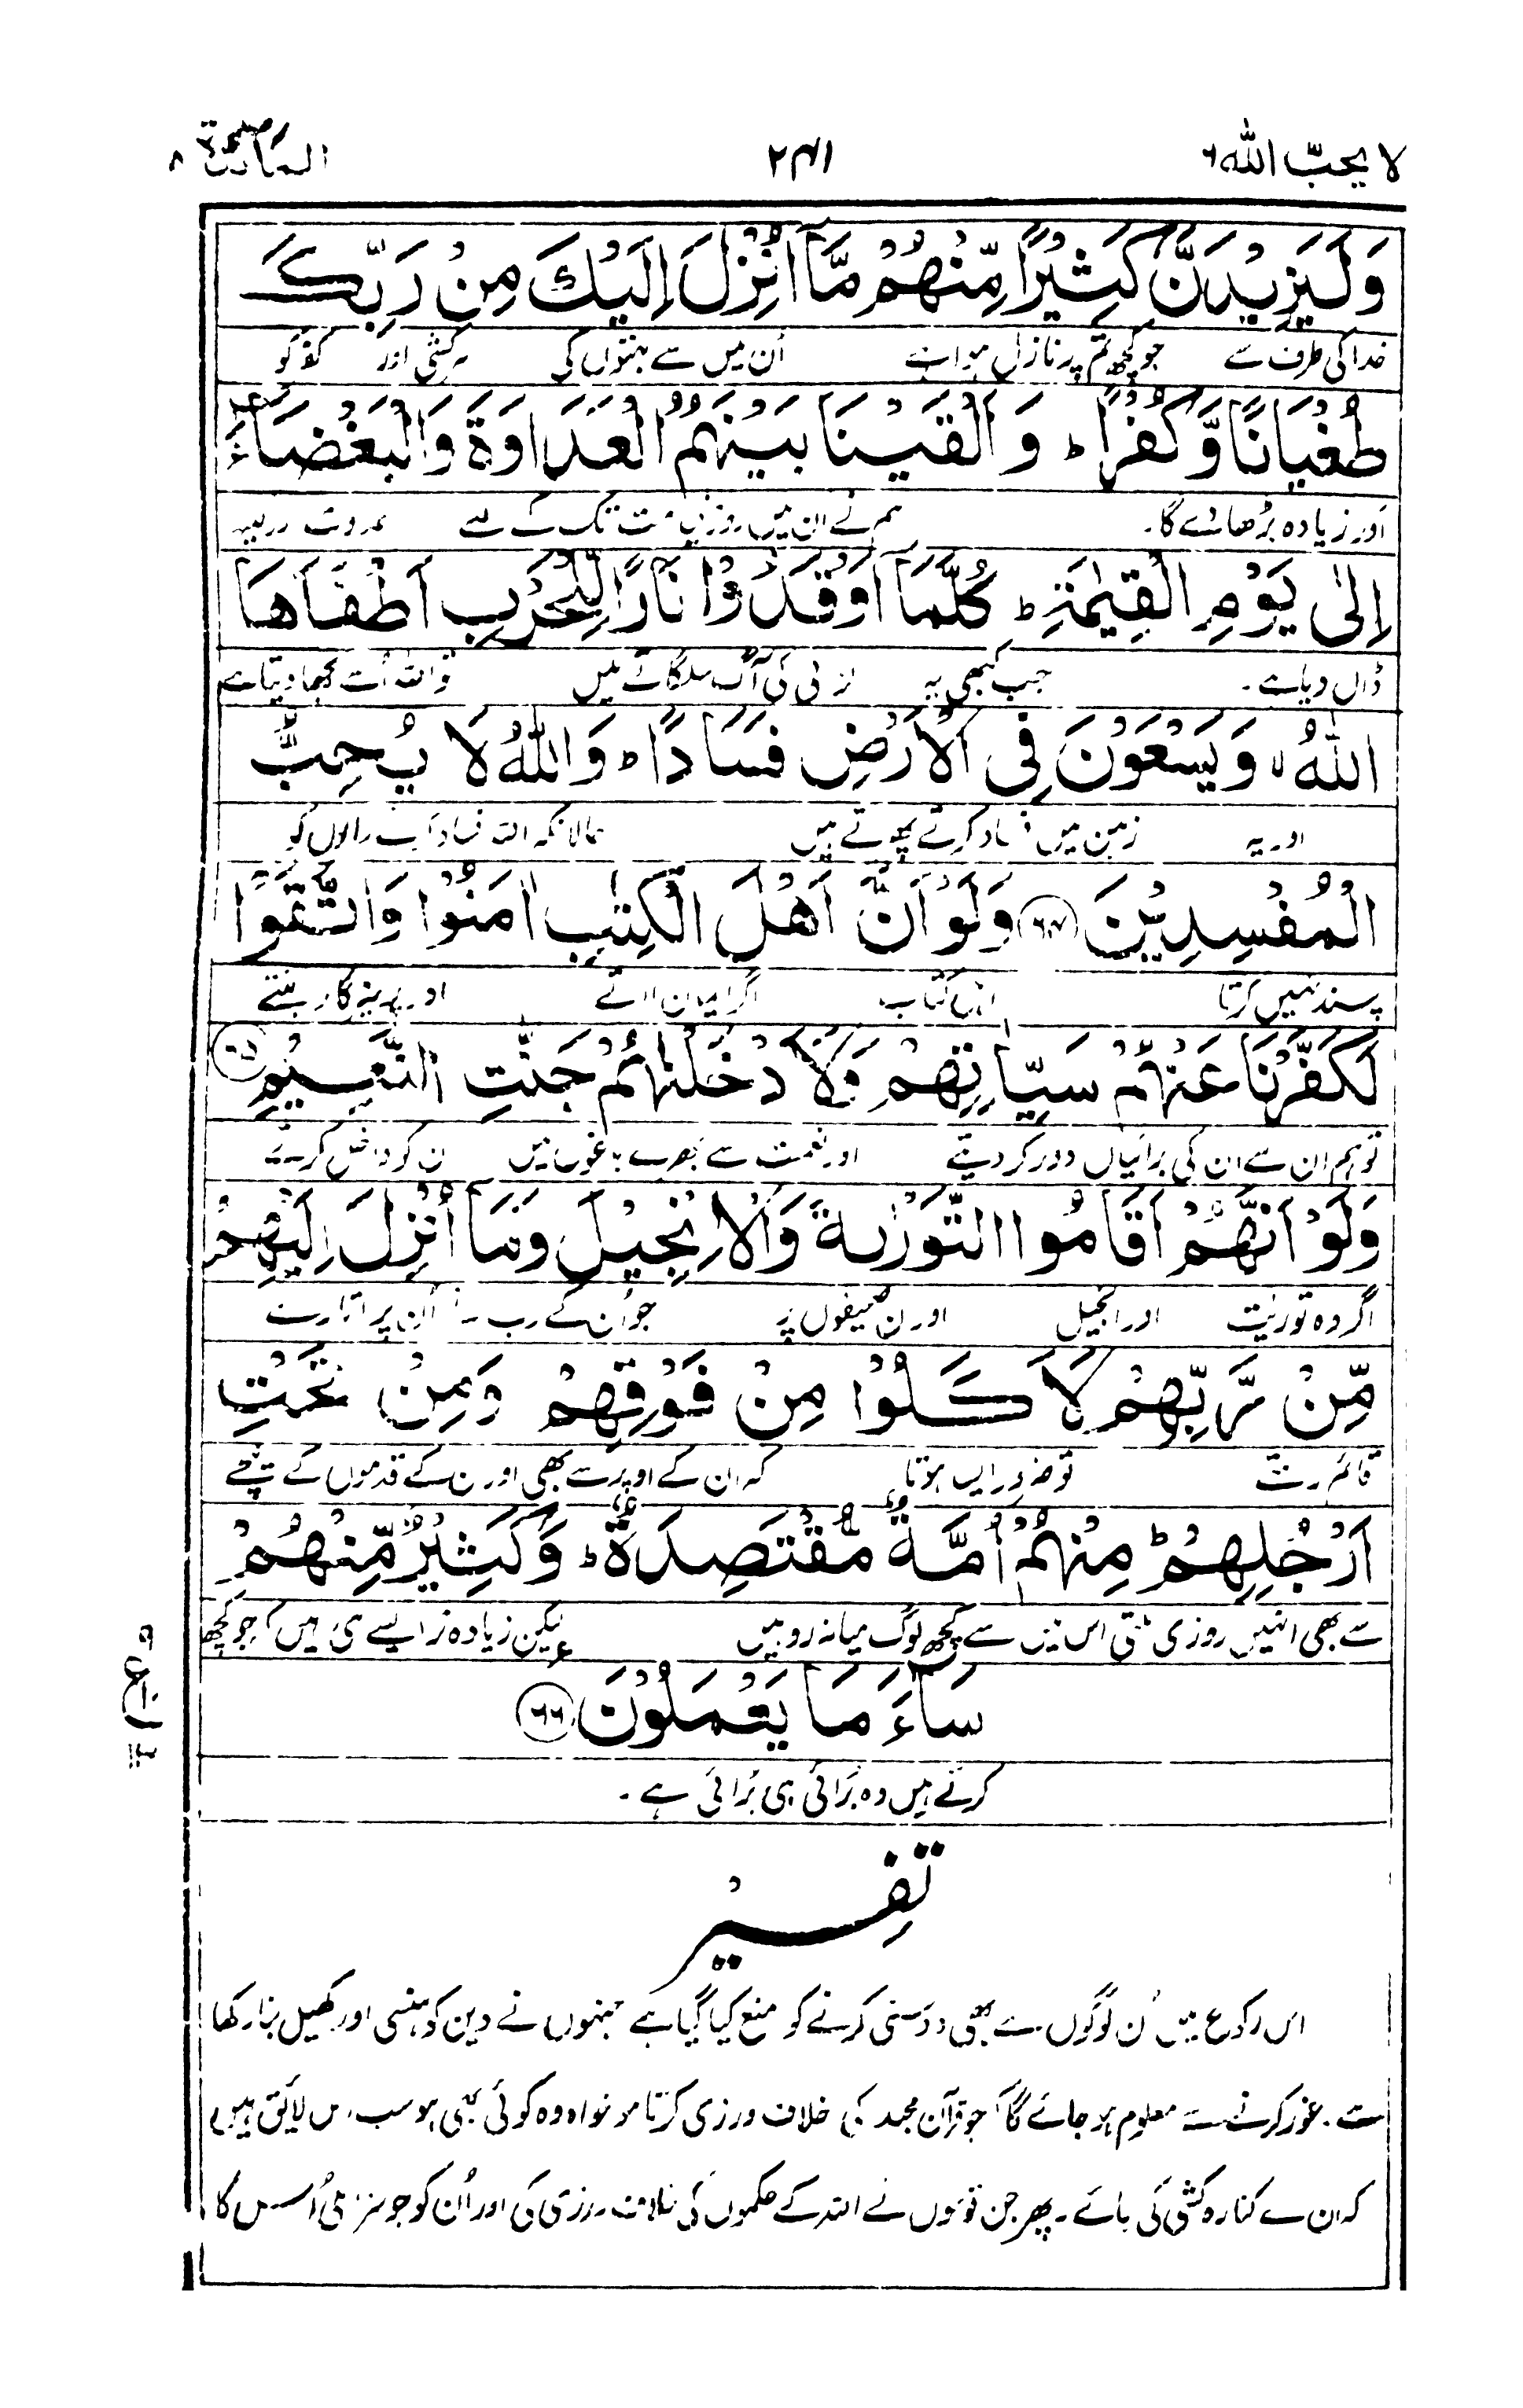 لا یحبّ اللہ ۶ ۲۴۱ المآئدۃ ۵
وَلَيَزِيْدَنَّ كَثِيْرًا مِّنْهُمْ مَّاۤ اُنْزِلَ اِلَيْكَ مِنْ رَبِّكَ
خدا کی طرف سے جو کچھ تم پر نازل ہوا ہے اُن میں سے بہتوں کی سرکشی اور کفر کو
طُغْيَانًا وَّكُفْرًا ؕ وَاَلْقَيْنَا بَيْنَهُمُ الْعَدَاوَةَ وَالْبَغْضَآءَ
اور زیادہ بڑھا دے گا۔ ہم نے ان میں روز قیامت تک کے لئے عداوت
اِلٰى يَوْمِ الْقِيٰمَةِ ؕ كُلَّمَاۤ اَوْقَدُوْا نَارًا لِّلْحَرْبِ اَطْفَاَهَا
ڈال دیا ہے۔ جب کبھی یہ لڑائی کی آگ سلگاتے ہیں تو اللہ اُسے بجھا دیتا ہے
اللّٰهُ ۙ وَيَسْعَوْنَ فِى الْاَرْضِ فَسَادًا ؕ وَاللّٰهُ لَا يُحِبُّ
اور یہ زمین میں فساد کرتے پھرتے ہیں حالانکہ اللہ فساد کرنے والوں کو
الْمُفْسِدِيْنَ ﴿۶۴﴾ وَلَوْ اَنَّ اَهْلَ الْكِتٰبِ اٰمَنُوْا وَاتَّقَوْا
پسند نہیں کرتا اہل کتاب اگر ایمان لاتے اور پرہیزگار بنتے
لَكَفَّرْنَا عَنْهُمْ سَيِّاٰتِهِمْ وَلَاَدْخَلْنٰهُمْ جَنّٰتِ النَّعِيْمِ ﴿۶۵﴾
تو ہم ان سے ان کی برائیاں دور کر دیتے اور نعمت سے بھرے باغوں میں ان کو داخل کرتے
وَلَوْ اَنَّهُمْ اَقَامُوا التَّوْرٰىةَ وَالْاِنْجِيْلَ وَمَاۤ اُنْزِلَ اِلَيْهِمْ
اگر وہ توریت اور انجیل اور ان صحیفوں پر جو اُن کے رب نے اُن پر اتارے
مِّنْ رَّبِّهِمْ لَاَكَلُوْا مِنْ فَوْقِهِمْ وَمِنْ تَحْتِ
قائم رہتے تو ضرور ایسا ہوتا کہ ان کے اوپر سے بھی اور ان کے قدموں کے نیچے
اَرْجُلِهِمْ ؕ مِنْهُمْ اُمَّةٌ مُّقْتَصِدَةٌ ؕ وَكَثِيْرٌ مِّنْهُمْ
سے بھی انہیں روزی ملتی اس میں سے کچھ لوگ میانہ رو ہیں لیکن زیادہ تر ایسے ہی ہیں کہ جو کچھ
سَآءَ مَا يَعْمَلُوْنَ ﴿۶۶﴾
کرتے ہیں وہ بُرائی ہی بُرائی ہے۔
تفسیر
اس رکوع میں اُن لوگوں سے بھی دوستی کرنے کو منع کیا گیا ہے جنہوں نے دین کو ہنسی اور کھیل بنا رکھا
ہے۔ غور کرنے سے معلوم ہو جائے گا کہ جو قرآن مجید کی خلاف ورزی کرتا ہو خواہ وہ کوئی بھی ہو سب اس لائق ہیں
کہ ان سے کنارہ کشی کی جائے۔ پھر جن قوموں نے اللہ کے حکموں کی خلاف ورزی کی اور اُن کو جو سزا ملی اُس کا